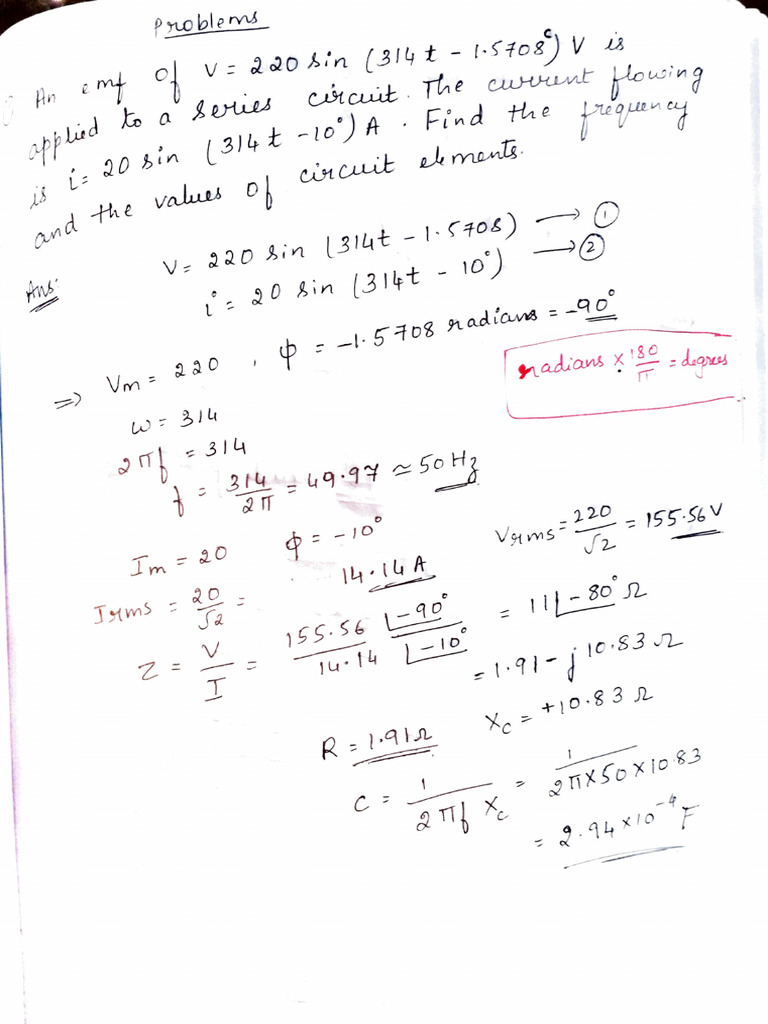 Problems
An emf of V = 220 sin (314t - 1.5708ᶜ) V is
applied to a series circuit. The current flowing
is i = 20 sin (314t - 10°) A. Find the frequency
and the values of circuit elements.
Ans:
V = 220 sin (314t - 1.5708) → ①
i = 20 sin (314t - 10°) → ②
⇒ Vm = 220 , ϕ = -1.5708 radians = -90°
radians × 180/π = degrees
ω = 314
2πf = 314
f = 314/2π = 49.97 ≃ 50 Hz
Im = 20 ϕ = -10° Vrms = 220/√2 = 155.56 V
Irms = 20/√2 = 14.14 A
Z = V/I = 155.56 ∠-90° / 14.14 ∠-10° = 11∠-80° Ω
= 1.91 - j 10.83 Ω
R = 1.91 Ω Xc = +10.83 Ω
C = 1/2πf Xc = 1/2π×50×10.83
= 2.94×10⁻⁴ F